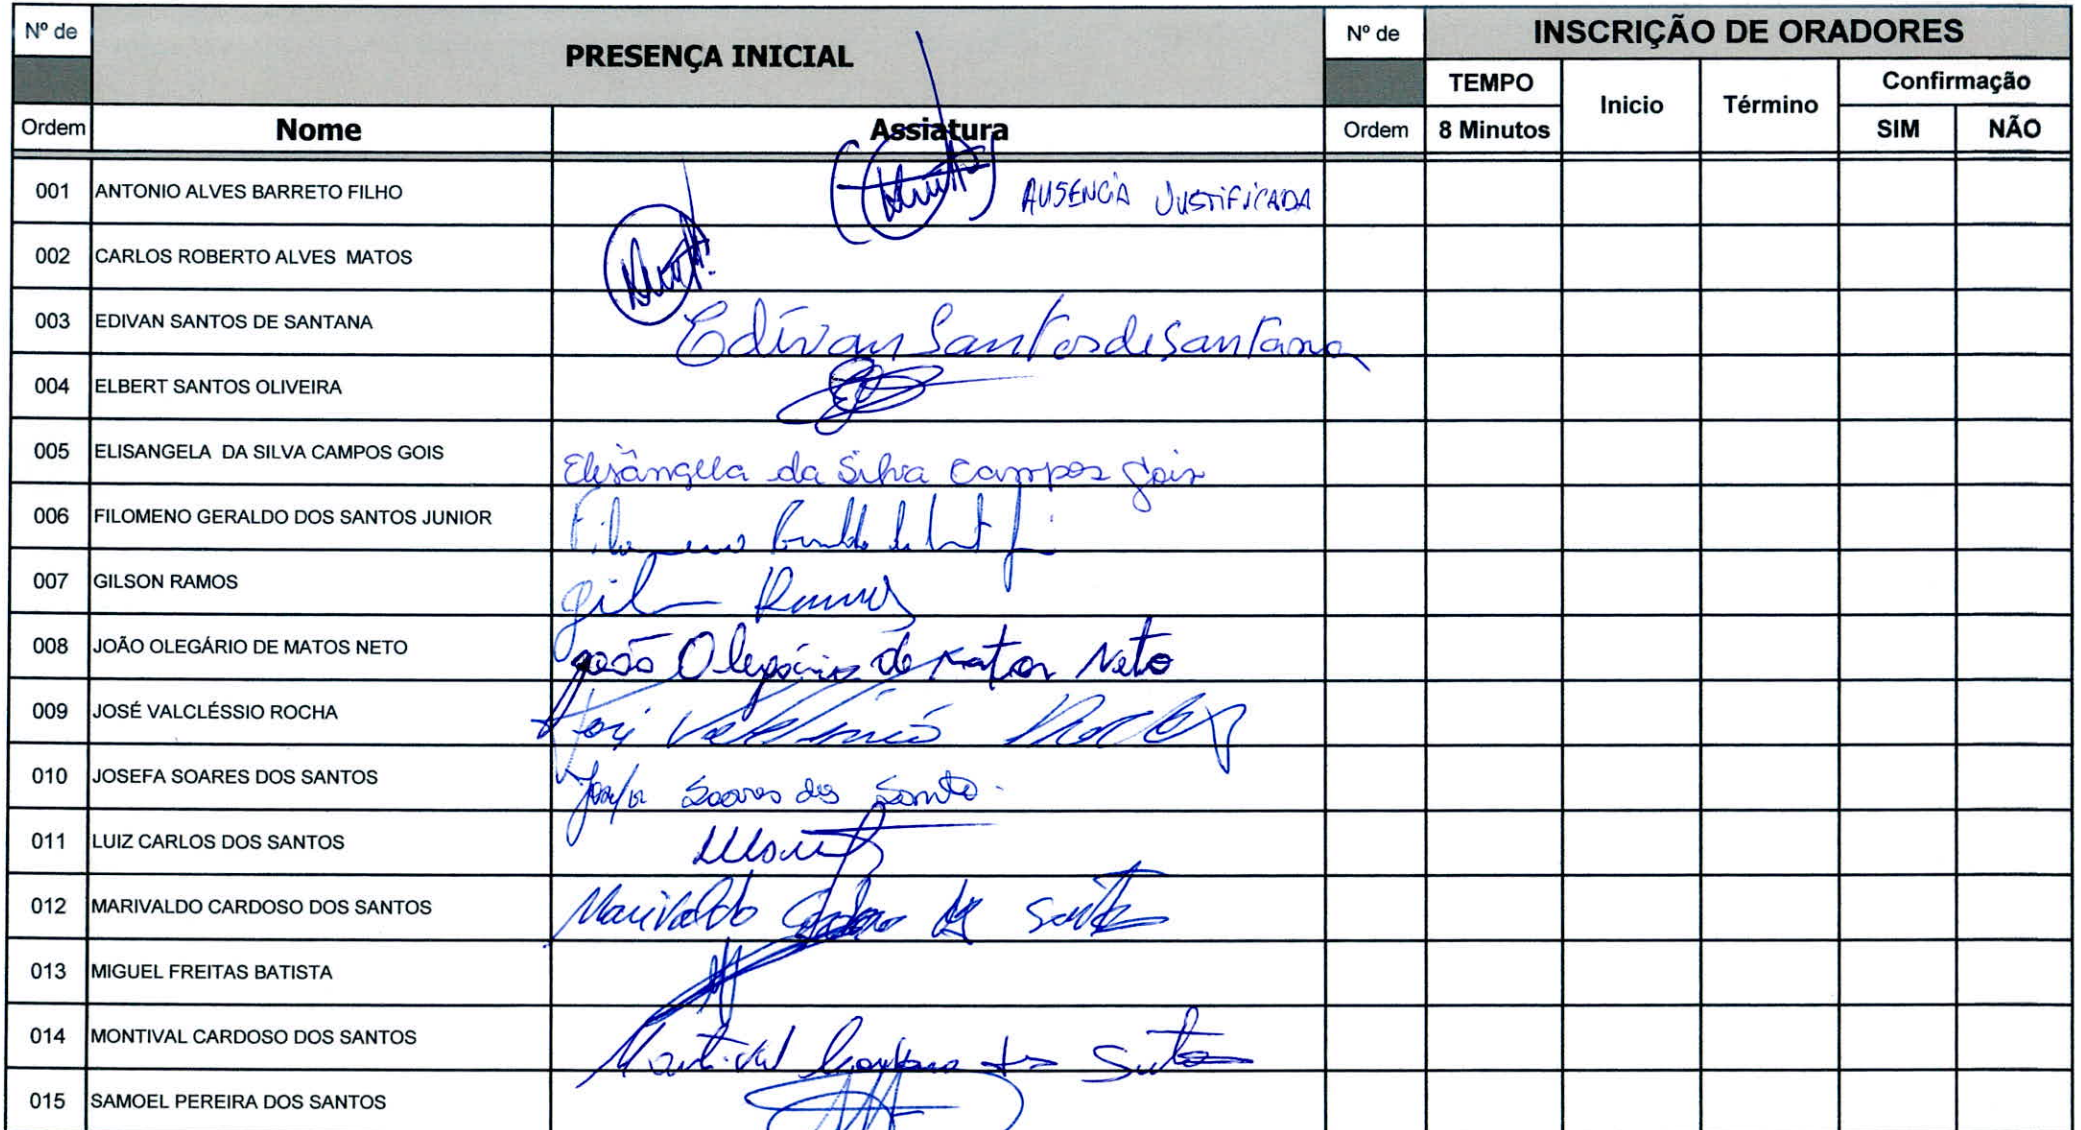 Nº de PRESENÇA INICIAL Nº de INSCRIÇÃO DE ORADORES
TEMPO Inicio Término Confirmação
Ordem Nome Assiatura Ordem 8 Minutos SIM NÃO
001 ANTONIO ALVES BARRETO FILHO AUSENCIA JUSTIFICADA
002 CARLOS ROBERTO ALVES MATOS
003 EDIVAN SANTOS DE SANTANA Edivan Santos de Santana
004 ELBERT SANTOS OLIVEIRA
005 ELISANGELA DA SILVA CAMPOS GOIS Elisângela da Silva Campos Gois
006 FILOMENO GERALDO DOS SANTOS JUNIOR Filomeno
007 GILSON RAMOS Gilson Ramos
008 JOÃO OLEGÁRIO DE MATOS NETO João Olegário de Matos Neto
009 JOSÉ VALCLÉSSIO ROCHA José Valcléssio Rocha
010 JOSEFA SOARES DOS SANTOS Josefa Soares dos Santos
011 LUIZ CARLOS DOS SANTOS
012 MARIVALDO CARDOSO DOS SANTOS Marivaldo Cardoso dos Santos
013 MIGUEL FREITAS BATISTA
014 MONTIVAL CARDOSO DOS SANTOS Montival Cardoso dos Santos
015 SAMOEL PEREIRA DOS SANTOS